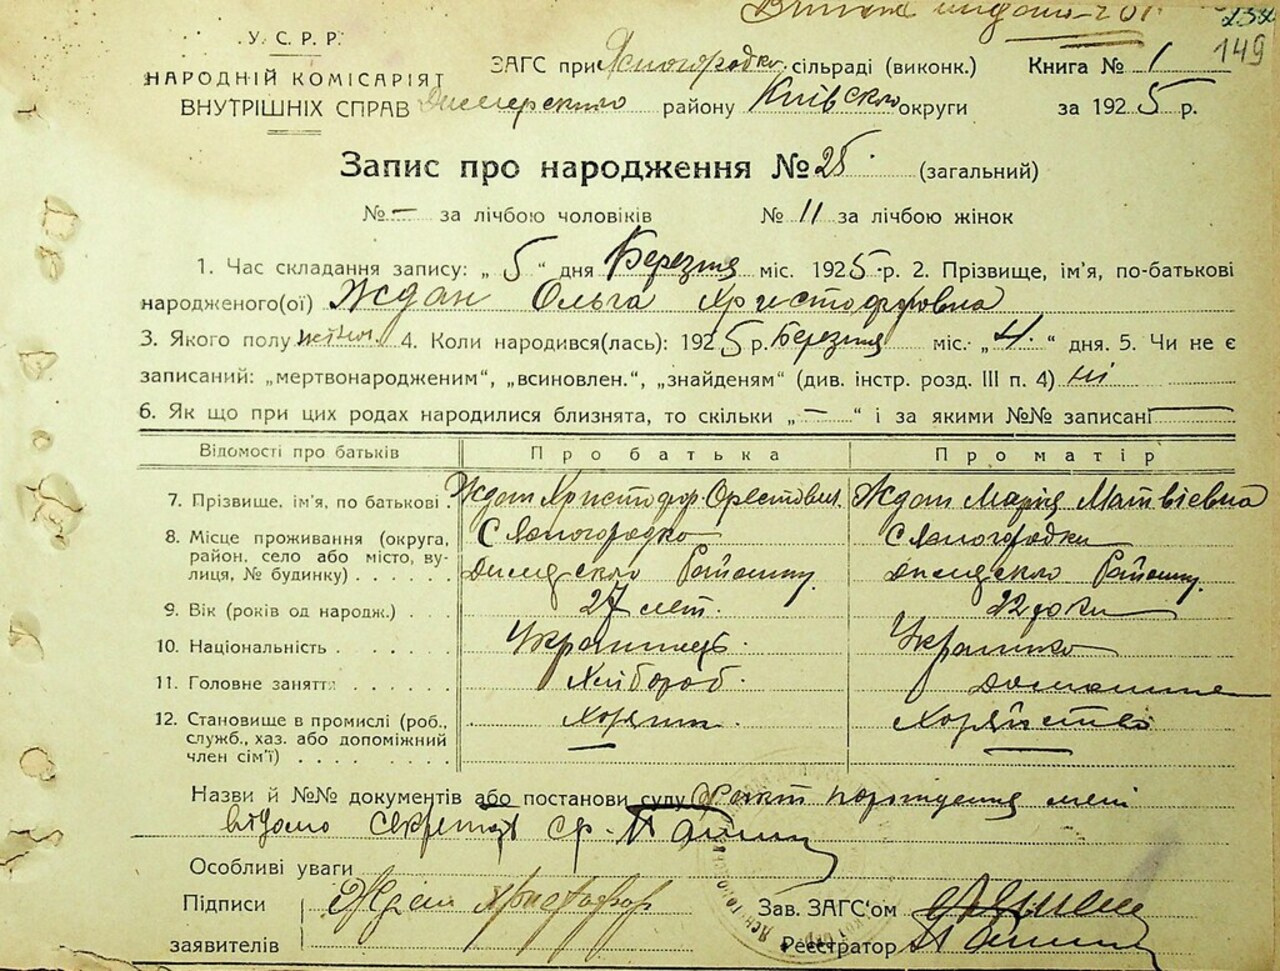 149
У.С.Р.Р.
НАРОДНІЙ КОМІСАРІЯТ
ВНУТРІШНІХ СПРАВ
ЗАГС при Ясногородко. сільраді (виконк.) Книга № 1
Димерского району Київско округи за 1925 р.
Запис про народження № 25. (загальний)
№ — за лічбою чоловіків № 11 за лічбою жінок
1. Час складання запису: „ 5 “ дня Березня міс. 1925 р. 2. Прізвище, ім'я, по-батькові
народженого(ої) Ждан Ольга Христофоровна
3. Якого полу жіноч. 4. Коли народився(лась): 1925 р. Березня міс. „ 4. “ дня. 5. Чи не є
записаний: „мертвонародженим“, „всиновлен.“, „знайденям“ (див. інстр. розд. III п. 4) ні
6. Як що при цих родах народилися близнята, то скільки „ — “ і за якими №№ записані —
Відомості про батьків Про батька Про матір
7. Прізвище, ім'я, по батькові . Ждан Христофор Орестович. Ждан Марія Матвіевна
8. Місце проживання (округа, район, село або місто, вулиця, № будинку) . . . . .
С Ясногородко С Ясногородки
Димерского Району. Димерского Району.
9. Вік (років од народж.) . . 27 лет. 22 годки
10. Національність . . . . . . Украинець. Украинка
11. Головне заняття . . . . . . Хлібороб. домашне
12. Становище в промислі (роб., служб., хаз. або допоміжний член сім'ї) . . . . . Хозяин. Хозяйство
Назви й №№ документів або постанови суду Факт нарождения мені
відомо секретарь с/р.
Особливі уваги
Підписи Ждан Христофор Зав. ЗАГС'ом
заявителів Реєстратор